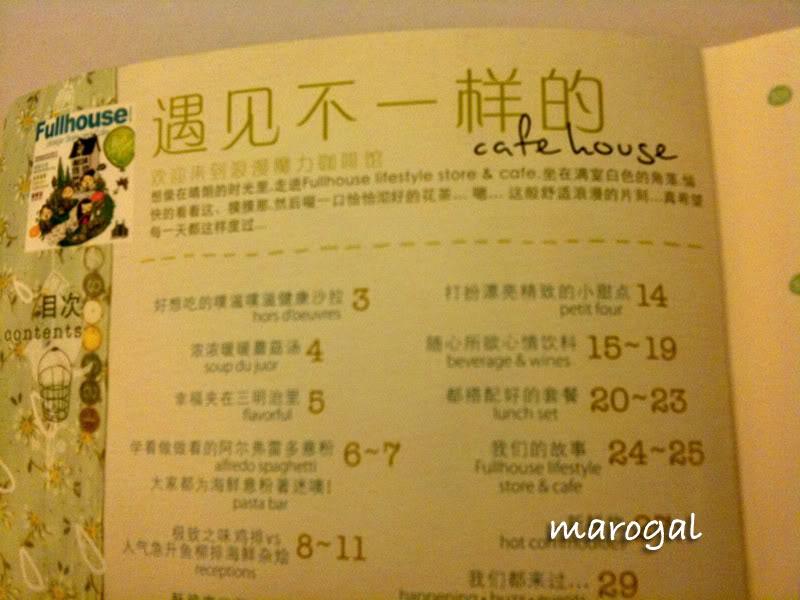 遇见不一样的
cafe house
欢迎来到浪漫魔力咖啡馆
想像在晴朗的时光里.走进Fullhouse lifestyle store & cafe.坐在满室白色的角落.愉
快的看看这、摸摸那.然后喝一口恰恰沏好的花茶... 嗯... 这般舒适浪漫的片刻...真希望
每一天都这样度过...
Fullhouse
目次
contents
好想吃的噗滋噗滋健康沙拉 3
hors d'oeuvres
浓浓暖暖蘑菇汤 4
soup du juor
幸福夹在三明治里 5
flavorful
学着做做看的阿尔弗雷多意粉 6~7
alfredo spaghetti
大家都为海鲜意粉著迷噢!
pasta bar
极致之味鸡排vs 8~11
人气急升鱼柳排海鲜杂烩
receptions
打扮漂亮精致的小甜点 14
petit four
随心所欲心情饮料 15~19
beverage & wines
都搭配好的套餐 20~23
lunch set
我们的故事 24~25
Fullhouse lifestyle
store & cafe
hot commodities
我们都来过... 29
happening • buzz • events
marogal